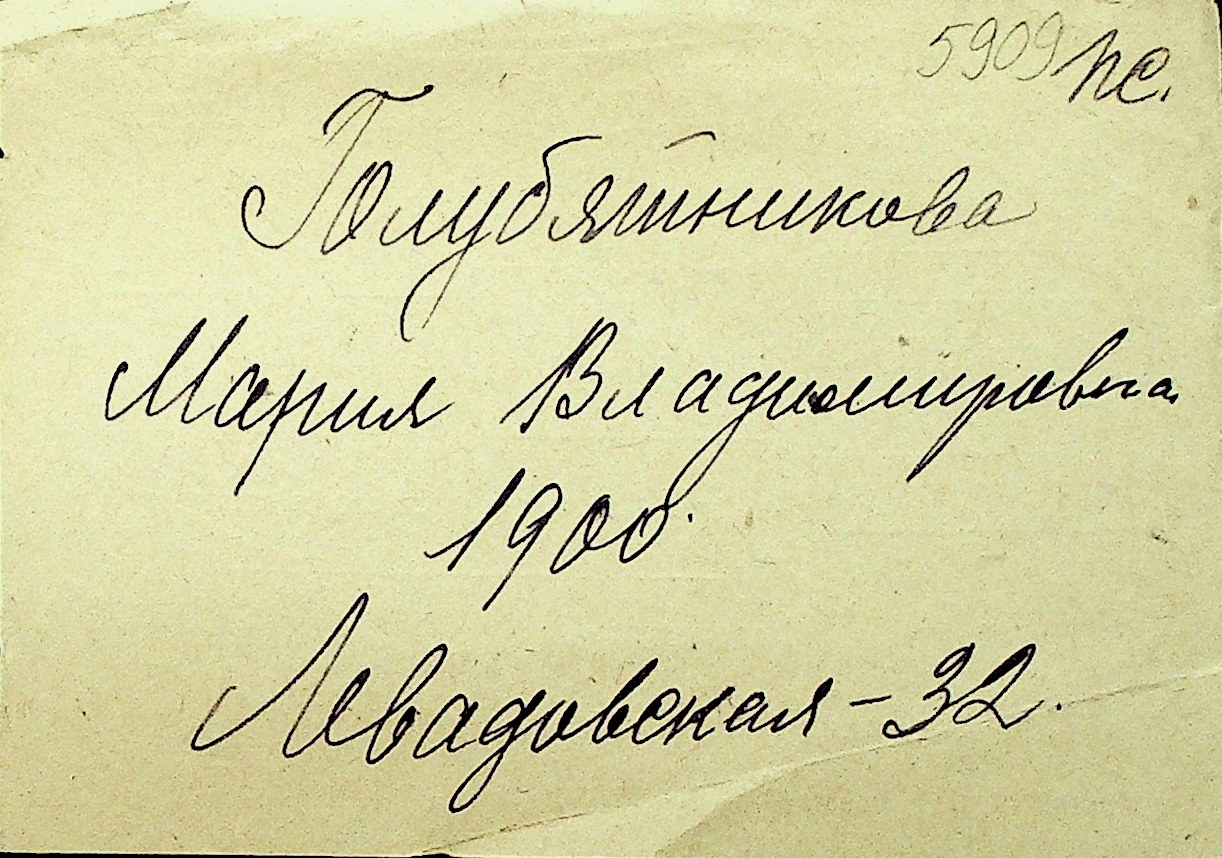 5909 пс.
Голубятникова
Мария Владимировна
1900.
Левадовская - 32.